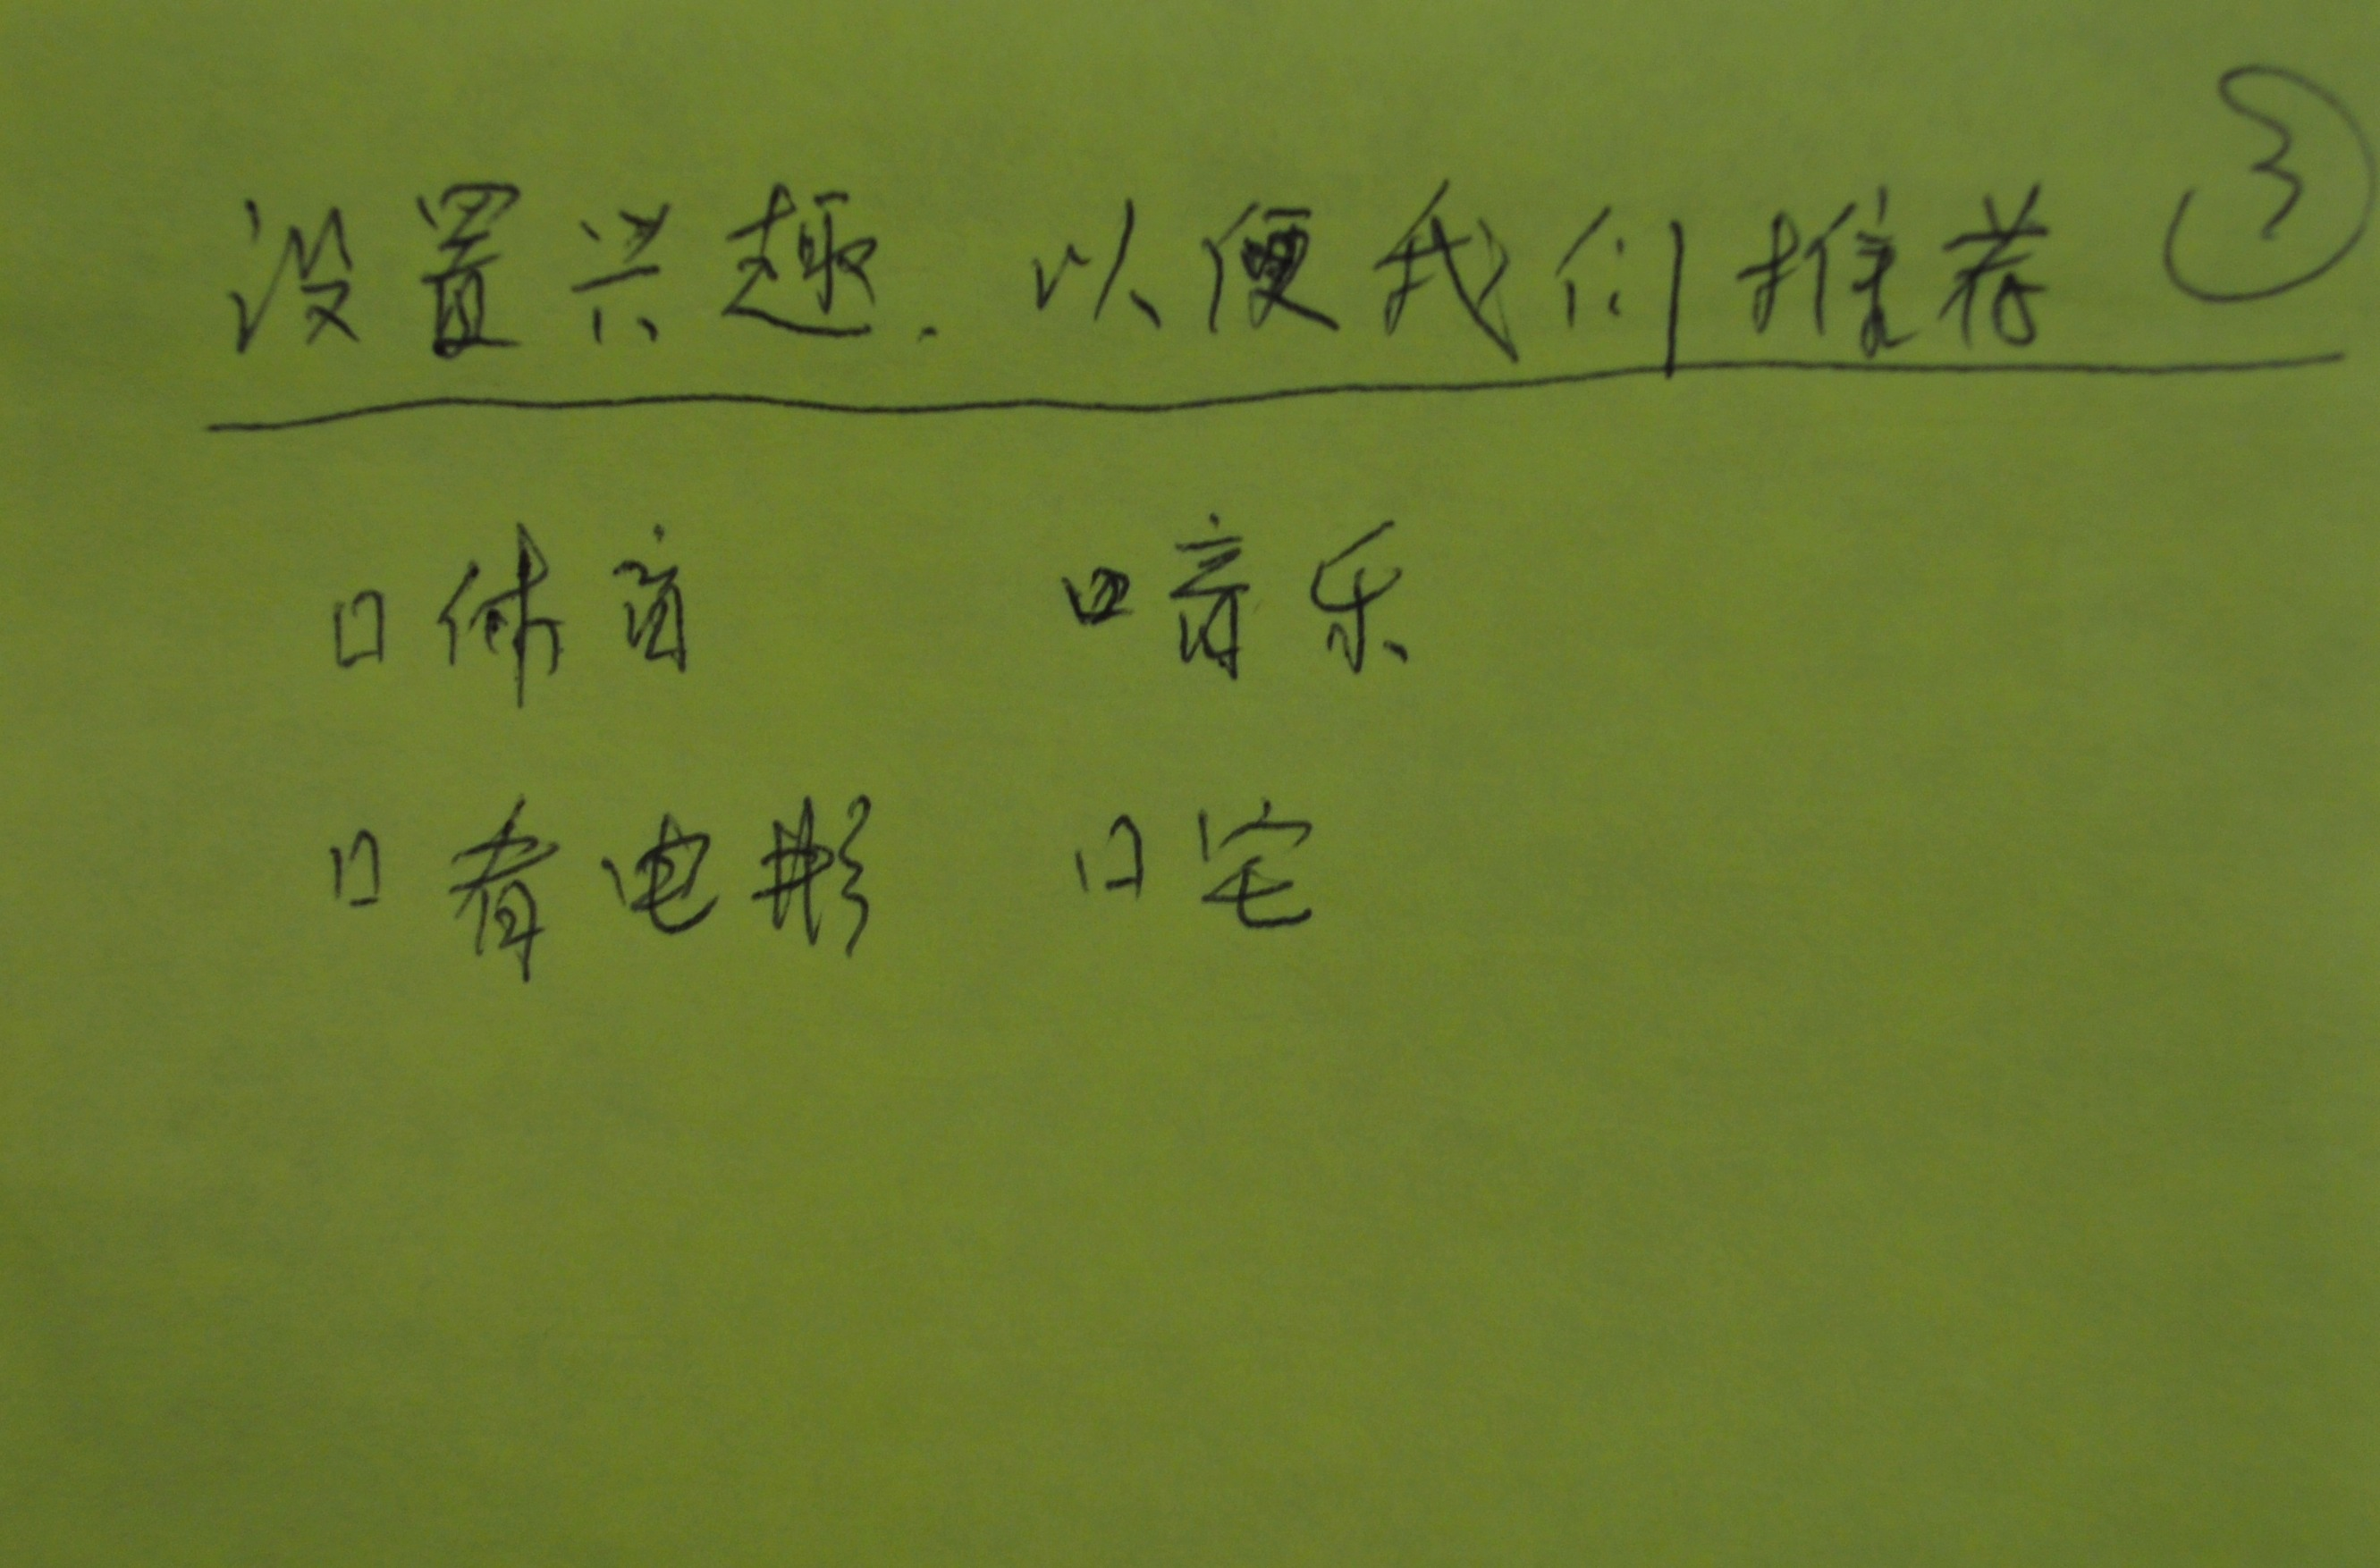 设置兴趣. 以便我们推荐 ③
□ 体育 □ 音乐
□ 看电影 □ 宅